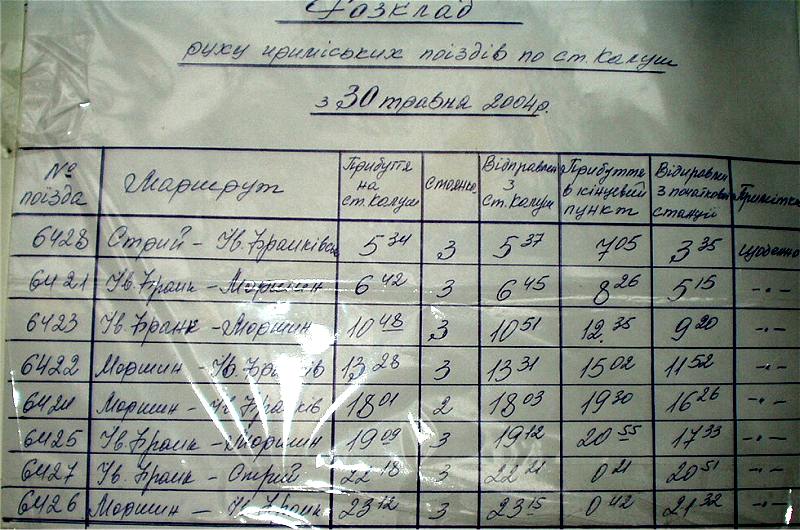 Розклад
руху приміських поїздів по ст. Калуш
з 30 травня 2004р.
№ поїзда Маршрут Прибуття на ст. Калуш Стоянка Відправлен з ст. Калуш Прибуття в кінцевий пункт Відправлен з початкової станції Примітка
6428 Стрий - Ів. Франківськ 5 34 3 5 37 7 05 3 35 щоденно
6421 Ів. Франк - Моршин 6 42 3 6 45 8 26 5 15 -"-
6423 Ів. Франк - Моршин 10 48 3 10 51 12 35 9 20 -"-
6422 Моршин - Ів. Франків 13 28 3 13 31 15 02 11 52 -"-
6424 Моршин - Ів. Франків 18 01 2 18 03 19 30 16 26 -"-
6425 Ів. Франк - Моршин 19 09 3 19 12 20 55 17 33 -"-
6427 Ів. Франк - Стрий 22 18 3 22 21 0 21 20 51 -"-
6426 Моршин - Ів. Франк 23 12 3 23 15 0 42 21 32 -"-